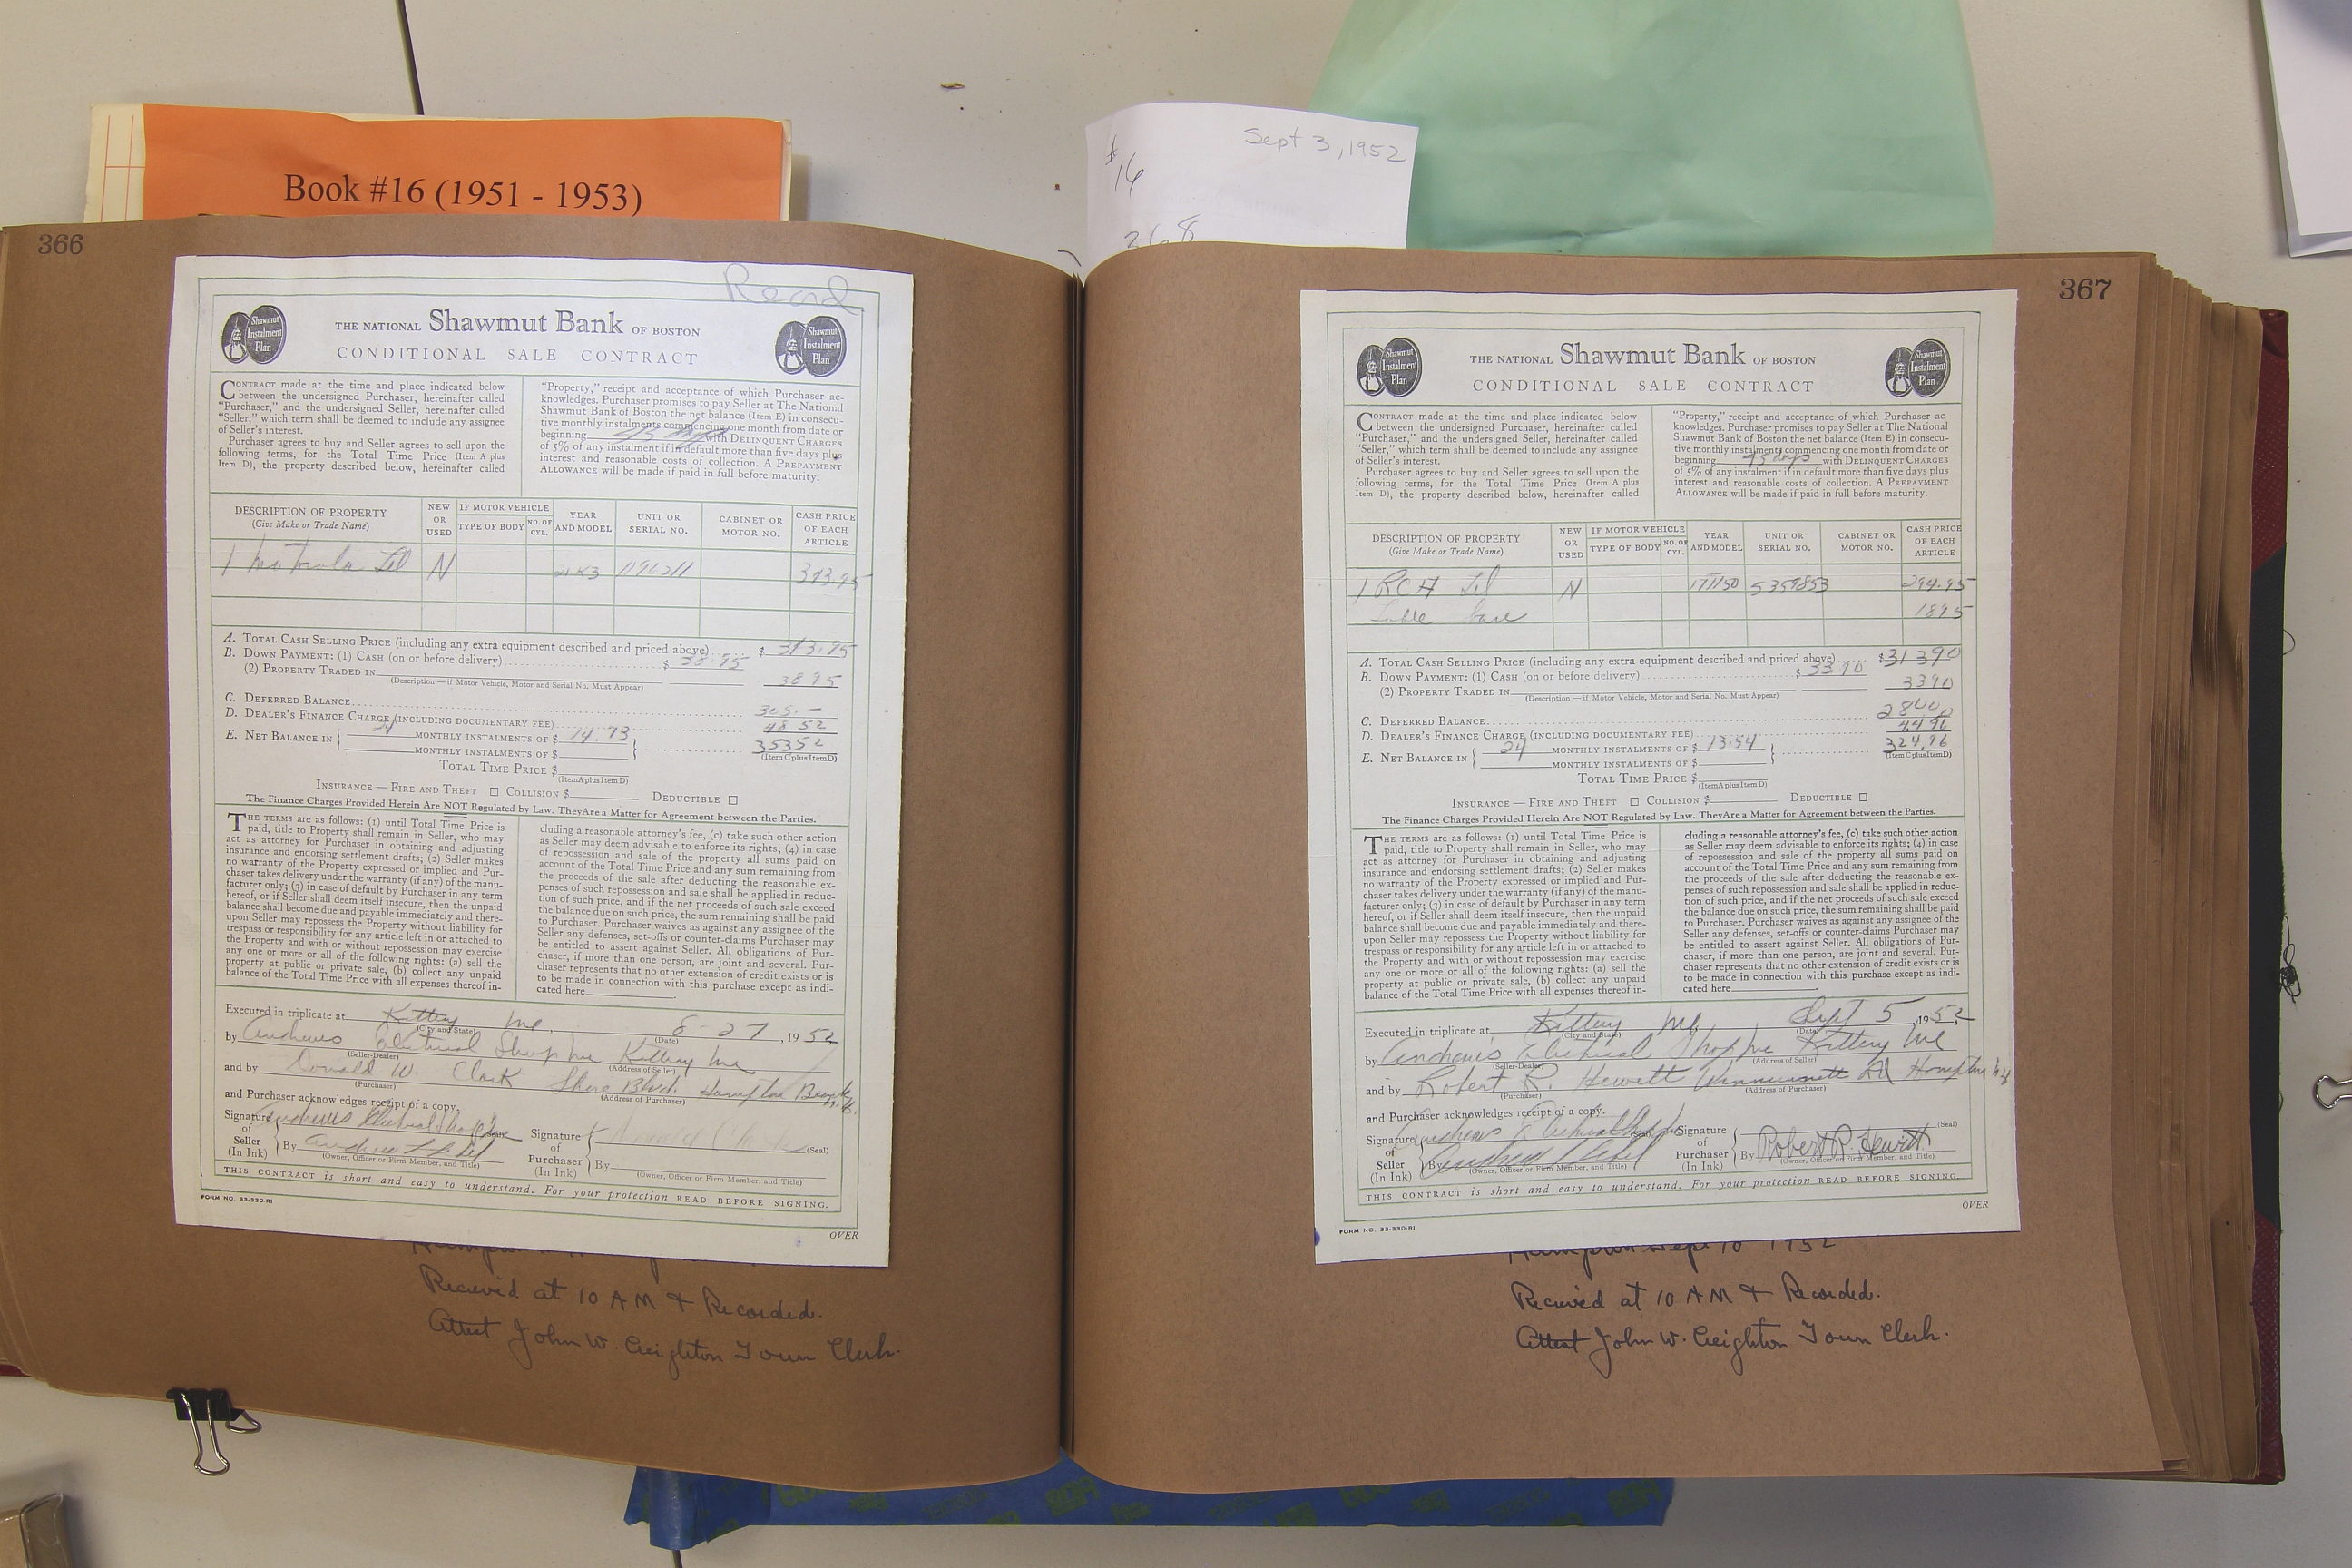 Book #16 (1951 - 1953)
Sept 3, 1952
# 16
368
366
Record
Shawmut
Instalment
Plan
THE NATIONAL Shawmut Bank OF BOSTON
CONDITIONAL SALE CONTRACT
Shawmut
Instalment
Plan
CONTRACT made at the time and place indicated below
between the undersigned Purchaser, hereinafter called
"Purchaser," and the undersigned Seller, hereinafter called
"Seller," which term shall be deemed to include any assignee
of Seller's interest.
Purchaser agrees to buy and Seller agrees to sell upon the
following terms, for the Total Time Price (Item A plus
Item D), the property described below, hereinafter called
"Property," receipt and acceptance of which Purchaser ac-
knowledges. Purchaser promises to pay Seller at The National
Shawmut Bank of Boston the net balance (Item E) in consecu-
tive monthly instalments commencing one month from date or
beginning 45 days with DELINQUENT CHARGES
of 5% of any instalment if in default more than five days plus
interest and reasonable costs of collection. A PREPAYMENT
ALLOWANCE will be made if paid in full before maturity.
DESCRIPTION OF PROPERTY
(Give Make or Trade Name)
NEW OR USED
IF MOTOR VEHICLE
TYPE OF BODY
NO. OF CYL.
YEAR AND MODEL
UNIT OR SERIAL NO.
CABINET OR MOTOR NO.
CASH PRICE OF EACH ARTICLE
1 Motorola Tel N 21K3
A. TOTAL CASH SELLING PRICE (including any extra equipment described and priced above) $
B. DOWN PAYMENT: (1) CASH (on or before delivery) $ 38.95
(2) PROPERTY TRADED IN 38 95
(Description — if Motor Vehicle, Motor and Serial No. Must Appear)
C. DEFERRED BALANCE 305.—
D. DEALER'S FINANCE CHARGE (INCLUDING DOCUMENTARY FEE) 48 52
E. NET BALANCE IN { 24 MONTHLY INSTALMENTS OF $ 14.73 } 353 52
MONTHLY INSTALMENTS OF $ (Item C plus Item D)
TOTAL TIME PRICE $
(Item A plus Item D)
INSURANCE — FIRE AND THEFT □ COLLISION $ DEDUCTIBLE □
The Finance Charges Provided Herein Are NOT Regulated by Law. They Are a Matter for Agreement between the Parties.
THE TERMS are as follows: (1) until Total Time Price is
paid, title to Property shall remain in Seller, who may
act as attorney for Purchaser in obtaining and adjusting
insurance and endorsing settlement drafts; (2) Seller makes
no warranty of the Property expressed or implied and Pur-
chaser takes delivery under the warranty (if any) of the manu-
facturer only; (3) in case of default by Purchaser in any term
hereof, or if Seller shall deem itself insecure, then the unpaid
balance shall become due and payable immediately and there-
upon Seller may repossess the Property without liability for
trespass or responsibility for any article left in or attached to
the Property and with or without repossession may exercise
any one or more or all of the following rights: (a) sell the
property at public or private sale, (b) collect any unpaid
balance of the Total Time Price with all expenses thereof in-
cluding a reasonable attorney's fee, (c) take such other action
as Seller may deem advisable to enforce its rights; (4) in case
of repossession and sale of the property all sums paid on
account of the Total Time Price and any sum remaining from
the proceeds of the sale after deducting the reasonable ex-
penses of such repossession and sale shall be applied in reduc-
tion of such price, and if the net proceeds of such sale exceed
the balance due on such price, the sum remaining shall be paid
to Purchaser. Purchaser waives as against any assignee of the
Seller any defenses, set-offs or counter-claims Purchaser may
be entitled to assert against Seller. All obligations of Pur-
chaser, if more than one person, are joint and several. Pur-
chaser represents that no other extension of credit exists or is
to be made in connection with this purchase except as indi-
cated here
Executed in triplicate at Kittery Me. 8-27, 1952
(City and State) (Date)
by Andrews Electrical Shop Inc Kittery Me
(Seller-Dealer) (Address of Seller)
and by Donald W. Clark Shore Blvd. Hampton Beach N.H.
(Purchaser) (Address of Purchaser)
and Purchaser acknowledges receipt of a copy.
Signature of Seller (In Ink) { Andrews Electrical Shop Inc
By
(Owner, Officer or Firm Member, and Title)
Signature of Purchaser (In Ink) { (Seal)
By
(Owner, Officer or Firm Member, and Title)
THIS CONTRACT is short and easy to understand. For your protection READ BEFORE SIGNING.
FORM NO. 33-330-RI
OVER
Recieved at 10 AM & Recorded.
Attest John W. Creighton Town Clerk.
367
Shawmut
Instalment
Plan
THE NATIONAL Shawmut Bank OF BOSTON
CONDITIONAL SALE CONTRACT
Shawmut
Instalment
Plan
CONTRACT made at the time and place indicated below
between the undersigned Purchaser, hereinafter called
"Purchaser," and the undersigned Seller, hereinafter called
"Seller," which term shall be deemed to include any assignee
of Seller's interest.
Purchaser agrees to buy and Seller agrees to sell upon the
following terms, for the Total Time Price (Item A plus
Item D), the property described below, hereinafter called
"Property," receipt and acceptance of which Purchaser ac-
knowledges. Purchaser promises to pay Seller at The National
Shawmut Bank of Boston the net balance (Item E) in consecu-
tive monthly instalments commencing one month from date or
beginning 45 days with DELINQUENT CHARGES
of 5% of any instalment if in default more than five days plus
interest and reasonable costs of collection. A PREPAYMENT
ALLOWANCE will be made if paid in full before maturity.
DESCRIPTION OF PROPERTY
(Give Make or Trade Name)
NEW OR USED
IF MOTOR VEHICLE
TYPE OF BODY
NO. OF CYL.
YEAR AND MODEL
UNIT OR SERIAL NO.
CABINET OR MOTOR NO.
CASH PRICE OF EACH ARTICLE
1 RCA Tel N 17T150 5359853 294.95
Table base 18 95
A. TOTAL CASH SELLING PRICE (including any extra equipment described and priced above) $ 313 90
B. DOWN PAYMENT: (1) CASH (on or before delivery) $ 33 90
(2) PROPERTY TRADED IN 33 90
(Description — if Motor Vehicle, Motor and Serial No. Must Appear)
C. DEFERRED BALANCE 280 00
D. DEALER'S FINANCE CHARGE (INCLUDING DOCUMENTARY FEE) 44 96
E. NET BALANCE IN { 24 MONTHLY INSTALMENTS OF $ 13.54 } 324.96
MONTHLY INSTALMENTS OF $ (Item C plus Item D)
TOTAL TIME PRICE $
(Item A plus Item D)
INSURANCE — FIRE AND THEFT □ COLLISION $ DEDUCTIBLE □
The Finance Charges Provided Herein Are NOT Regulated by Law. They Are a Matter for Agreement between the Parties.
THE TERMS are as follows: (1) until Total Time Price is
paid, title to Property shall remain in Seller, who may
act as attorney for Purchaser in obtaining and adjusting
insurance and endorsing settlement drafts; (2) Seller makes
no warranty of the Property expressed or implied and Pur-
chaser takes delivery under the warranty (if any) of the manu-
facturer only; (3) in case of default by Purchaser in any term
hereof, or if Seller shall deem itself insecure, then the unpaid
balance shall become due and payable immediately and there-
upon Seller may repossess the Property without liability for
trespass or responsibility for any article left in or attached to
the Property and with or without repossession may exercise
any one or more or all of the following rights: (a) sell the
property at public or private sale, (b) collect any unpaid
balance of the Total Time Price with all expenses thereof in-
cluding a reasonable attorney's fee, (c) take such other action
as Seller may deem advisable to enforce its rights; (4) in case
of repossession and sale of the property all sums paid on
account of the Total Time Price and any sum remaining from
the proceeds of the sale after deducting the reasonable ex-
penses of such repossession and sale shall be applied in reduc-
tion of such price, and if the net proceeds of such sale exceed
the balance due on such price, the sum remaining shall be paid
to Purchaser. Purchaser waives as against any assignee of the
Seller any defenses, set-offs or counter-claims Purchaser may
be entitled to assert against Seller. All obligations of Pur-
chaser, if more than one person, are joint and several. Pur-
chaser represents that no other extension of credit exists or is
to be made in connection with this purchase except as indi-
cated here
Executed in triplicate at Kittery Me. Sept 5, 1952
(City and State) (Date)
by Andrew's Electrical Shop Inc Kittery Me
(Seller-Dealer) (Address of Seller)
and by Robert R. Hewett Winnacunnett Rd Hampton N.H
(Purchaser) (Address of Purchaser)
and Purchaser acknowledges receipt of a copy.
Signature of Seller (In Ink) { Andrews Electrical Shop Inc
By
(Owner, Officer or Firm Member, and Title)
Signature of Purchaser (In Ink) { (Seal)
By Robert R. Hewett
(Owner, Officer or Firm Member, and Title)
THIS CONTRACT is short and easy to understand. For your protection READ BEFORE SIGNING.
FORM NO. 33-330-RI
OVER
Hampton Sept 10 1952
Recieved at 10 AM & Recorded.
Attest John W. Creighton Town Clerk.